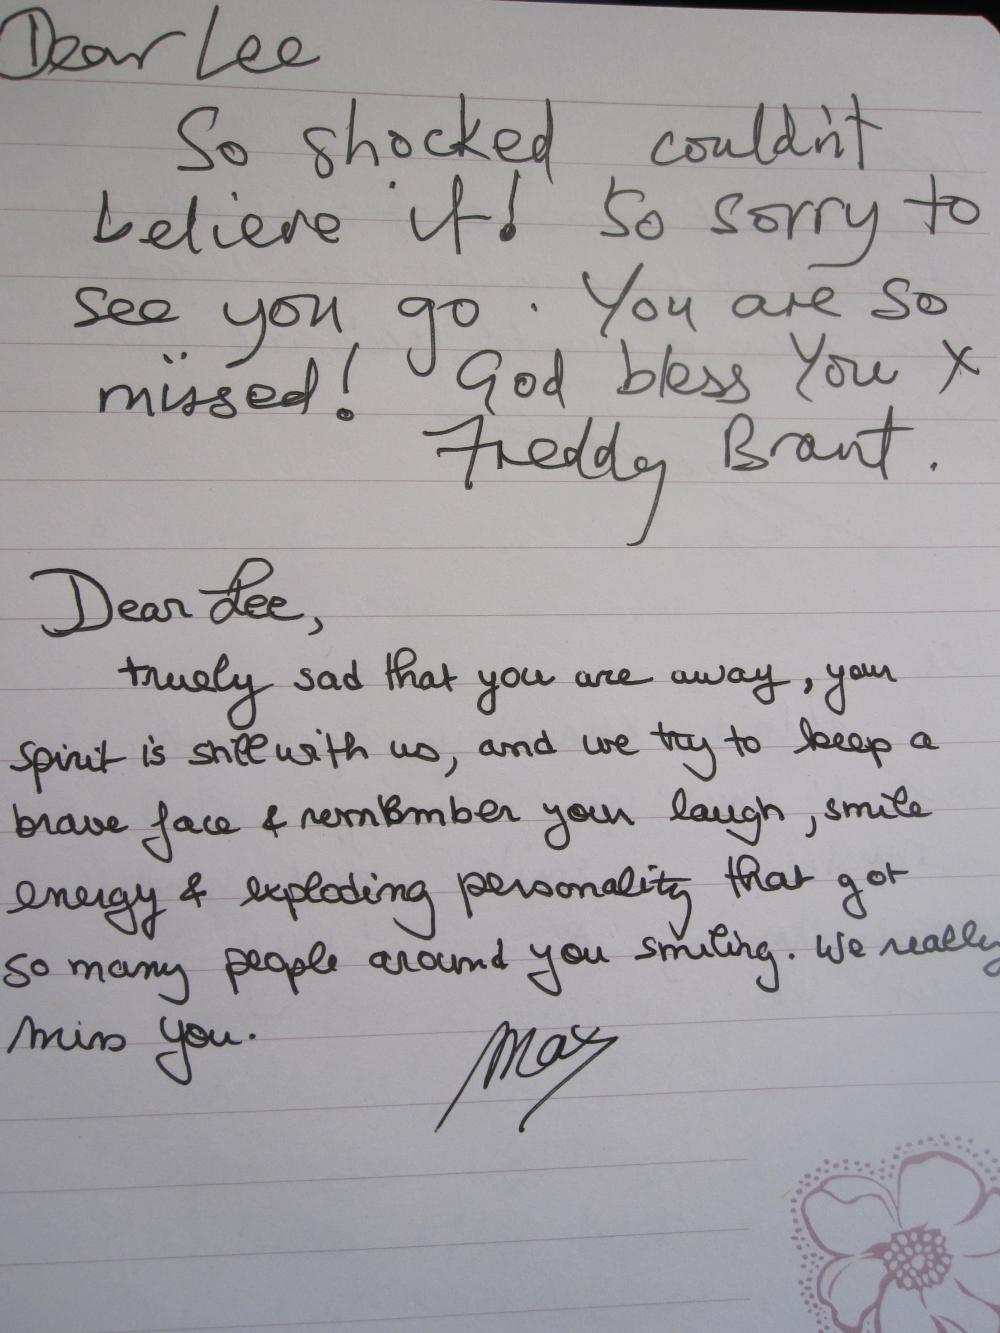 Dear Lee
So shocked couldn't
believe it! So sorry to
see you go. You are so
missed! God bless You X
Freddy Brant.
Dear Lee,
truely sad that you are away, your
spirit is still with us, and we try to keep a
brave face & remember your laugh, smile
energy & exploding personality that got
so many people around you smiling. We really
miss you.
Max